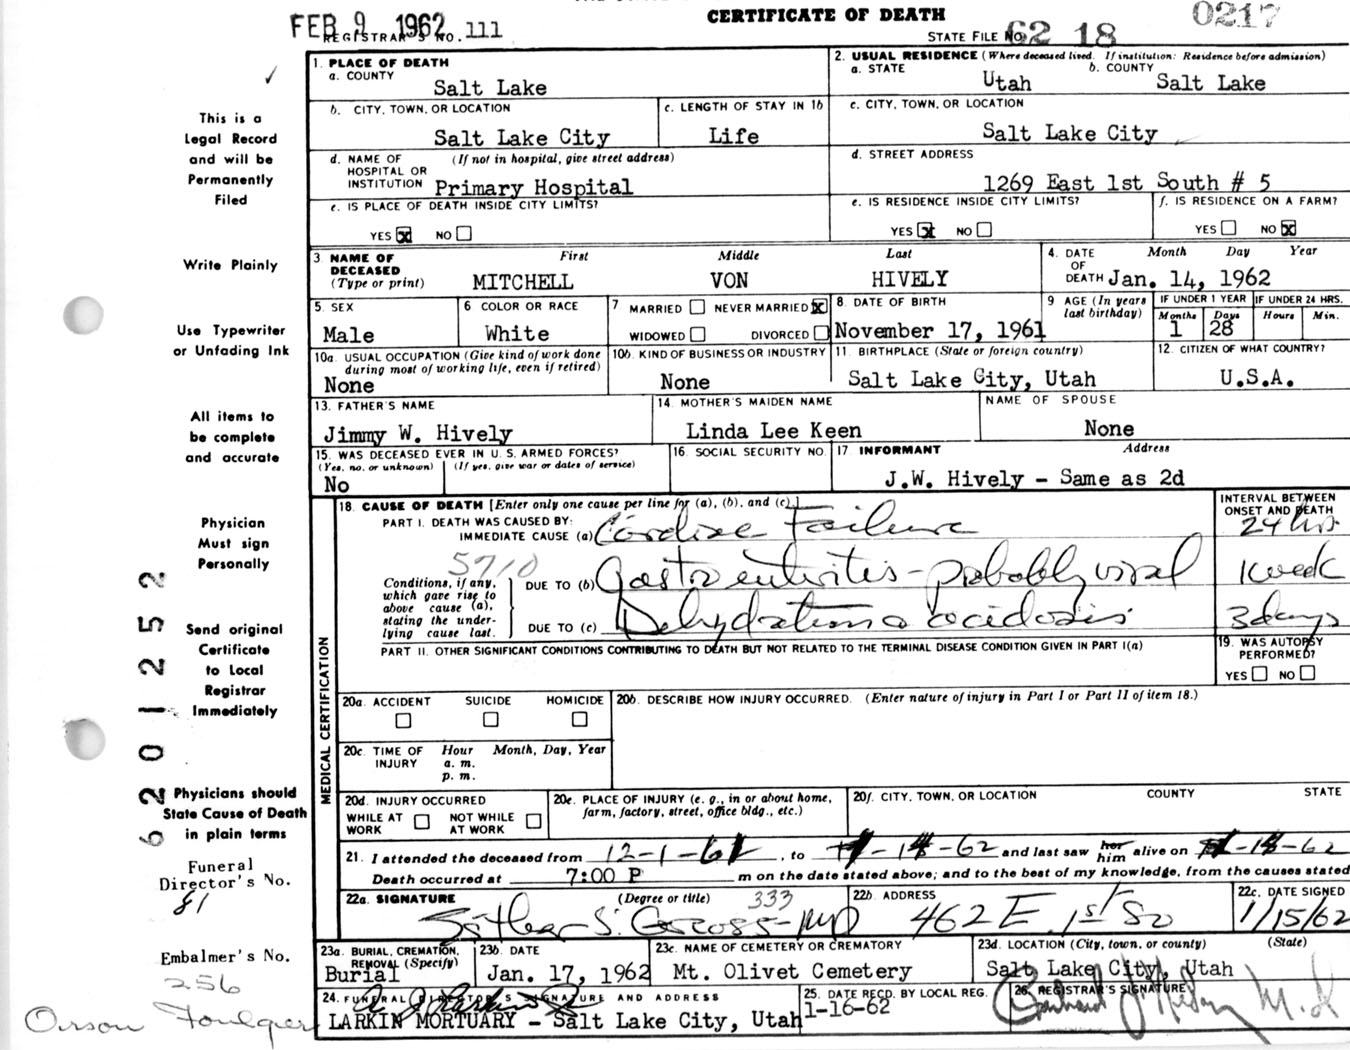 CERTIFICATE OF DEATH
0217
FEB 9 1962
REGISTRAR'S NO. 111
STATE FILE NO. 62 18
1. PLACE OF DEATH
a. COUNTY
Salt Lake
2. USUAL RESIDENCE (Where deceased lived. If institution: Residence before admission)
a. STATE Utah b. COUNTY Salt Lake
b. CITY, TOWN, OR LOCATION
Salt Lake City
c. LENGTH OF STAY IN 1b
Life
c. CITY, TOWN, OR LOCATION
Salt Lake City
d. NAME OF HOSPITAL OR INSTITUTION (If not in hospital, give street address)
Primary Hospital
d. STREET ADDRESS
1269 East 1st South # 5
e. IS PLACE OF DEATH INSIDE CITY LIMITS?
YES X NO
e. IS RESIDENCE INSIDE CITY LIMITS?
YES X NO
f. IS RESIDENCE ON A FARM?
YES NO X
3. NAME OF DECEASED (Type or print)
First Middle Last
MITCHELL VON HIVELY
4. DATE OF DEATH Month Day Year
Jan. 14, 1962
5. SEX
Male
6 COLOR OR RACE
White
7 MARRIED NEVER MARRIED X
WIDOWED DIVORCED
8. DATE OF BIRTH
November 17, 1961
9 AGE (In years last birthday)
IF UNDER 1 YEAR IF UNDER 24 HRS.
Months Days Hours Min.
1 28
10a. USUAL OCCUPATION (Give kind of work done during most of working life, even if retired)
None
10b. KIND OF BUSINESS OR INDUSTRY
None
11. BIRTHPLACE (State or foreign country)
Salt Lake City, Utah
12. CITIZEN OF WHAT COUNTRY?
U.S.A.
13. FATHER'S NAME
Jimmy W. Hively
14. MOTHER'S MAIDEN NAME
Linda Lee Keen
NAME OF SPOUSE
None
15. WAS DECEASED EVER IN U. S. ARMED FORCES?
(Yes, no, or unknown) (If yes, give war or dates of service)
No
16. SOCIAL SECURITY NO.
17 INFORMANT Address
J.W. Hively - Same as 2d
MEDICAL CERTIFICATION
18. CAUSE OF DEATH [Enter only one cause per line for (a), (b), and (c).]
INTERVAL BETWEEN ONSET AND DEATH
PART I. DEATH WAS CAUSED BY:
IMMEDIATE CAUSE (a) Cardiac Failure 24 hrs
5710
Conditions, if any, which gave rise to above cause (a), stating the underlying cause last.
DUE TO (b) Gastroenteritis - probably viral 1 week
DUE TO (c) Dehydration & acidosis 3 days
PART II. OTHER SIGNIFICANT CONDITIONS CONTRIBUTING TO DEATH BUT NOT RELATED TO THE TERMINAL DISEASE CONDITION GIVEN IN PART I(a)
19. WAS AUTOPSY PERFORMED?
YES NO
20a. ACCIDENT SUICIDE HOMICIDE
20b. DESCRIBE HOW INJURY OCCURRED. (Enter nature of injury in Part I or Part II of item 18.)
20c. TIME OF INJURY Hour Month, Day, Year
a. m.
p. m.
20d. INJURY OCCURRED
WHILE AT WORK NOT WHILE AT WORK
20e. PLACE OF INJURY (e. g., in or about home, farm, factory, street, office bldg., etc.)
20f. CITY, TOWN, OR LOCATION COUNTY STATE
21. I attended the deceased from 12-1-61, to 1-14-62 and last saw her him alive on 1-14-62
Death occurred at 7:00 P m on the date stated above; and to the best of my knowledge, from the causes stated
22a. SIGNATURE (Degree or title) 333
22b. ADDRESS
462 E. 1st So
22c. DATE SIGNED
1/15/62
23a. BURIAL, CREMATION, REMOVAL (Specify)
Burial
23b. DATE
Jan. 17, 1962
23c. NAME OF CEMETERY OR CREMATORY
Mt. Olivet Cemetery
23d. LOCATION (City, town, or county) (State)
Salt Lake City, Utah
24. FUNERAL DIRECTOR'S SIGNATURE AND ADDRESS
LARKIN MORTUARY - Salt Lake City, Utah
25. DATE RECD. BY LOCAL REG.
1-16-62
26. REGISTRAR'S SIGNATURE
This is a
Legal Record
and will be
Permanently
Filed
Write Plainly
Use Typewriter
or Unfading Ink
All items to
be complete
and accurate
Physician
Must sign
Personally
Send original
Certificate
to Local
Registrar
Immediately
Physicians should
State Cause of Death
in plain terms
62 01 252
Funeral
Director's No.
81
Embalmer's No.
256
Orson